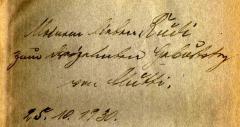 Meinem lieben Rudi
zum dreizehnten Geburtstag
von Mutti.
25.10.1930.